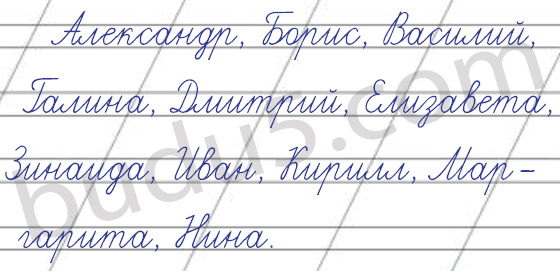 Александр, Борис, Василий,
Галина, Дмитрий, Елизавета,
Зинаида, Иван, Кирилл, Мар-
гарита, Нина.
budu5.com